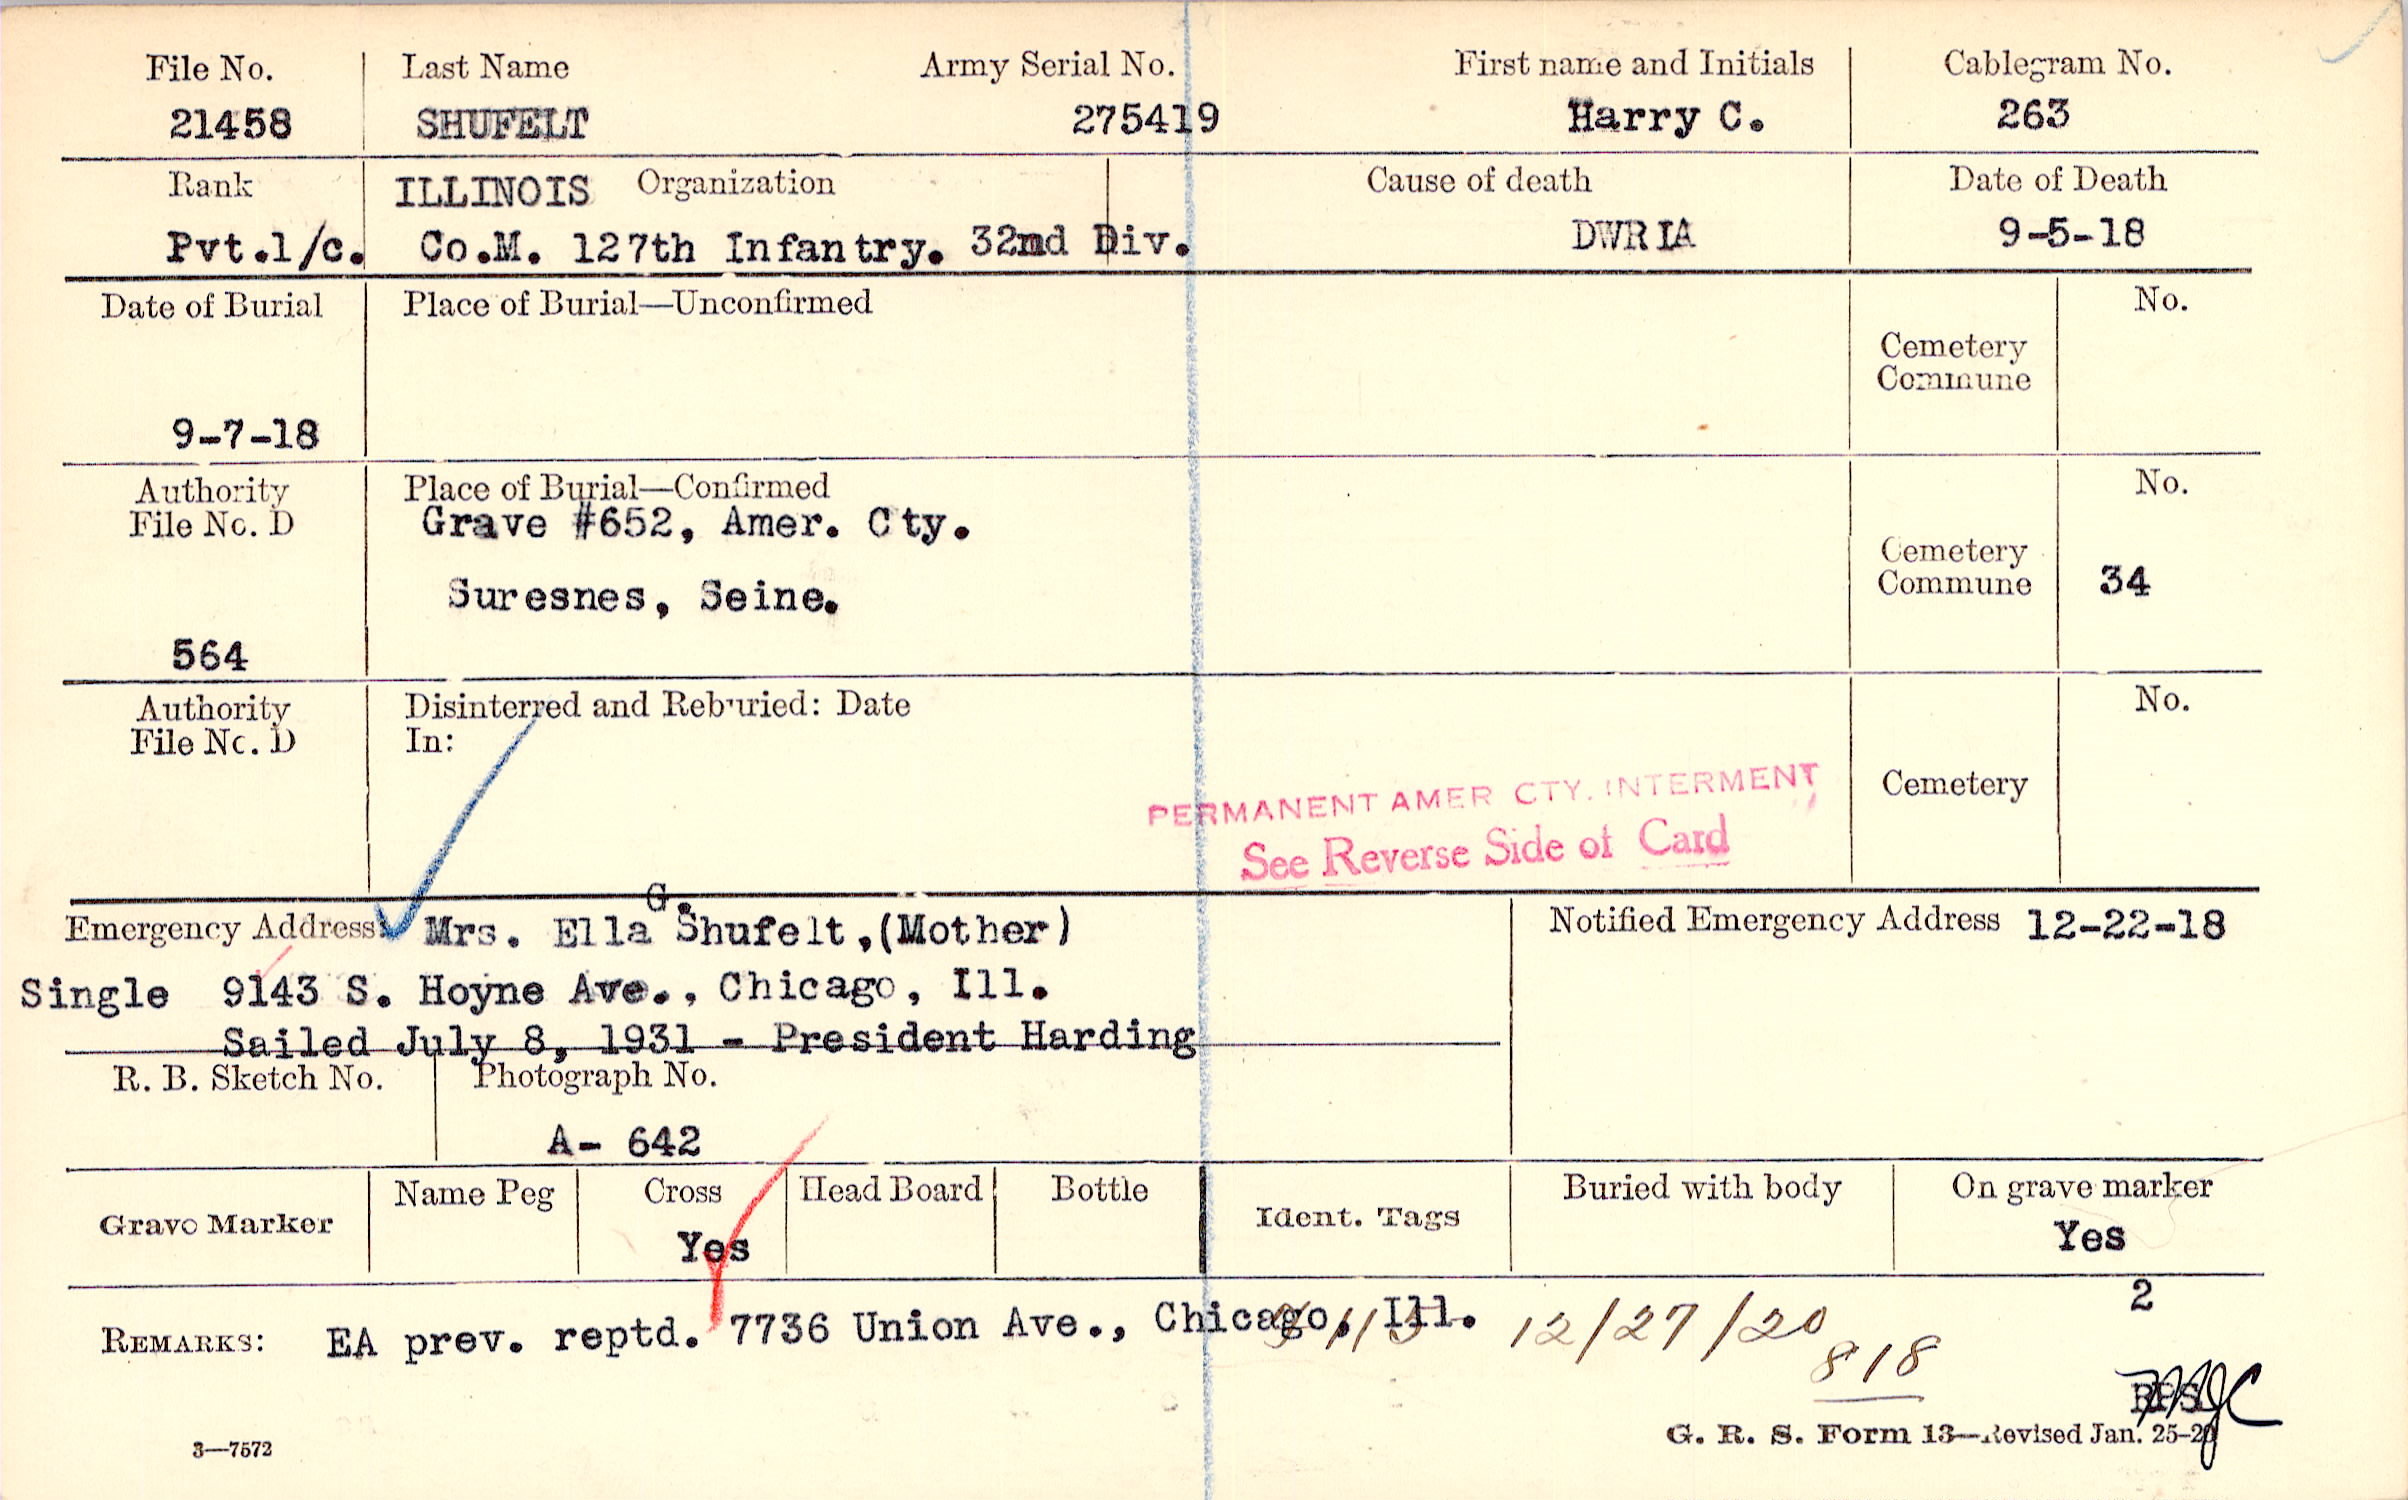 File No. Last Name Army Serial No. First name and Initials Cablegram No.
21458 SHUFELT 275419 Harry C. 263
Rank ILLINOIS Organization Cause of death Date of Death
Pvt.1/c. Co.M. 127th Infantry. 32nd Div. DWRIA 9-5-18
Date of Burial Place of Burial—Unconfirmed No.
Cemetery
Commune
9-7-18
Authority Place of Burial—Confirmed No.
File No. D Grave #652, Amer. Cty.
Cemetery
Commune 34
Suresnes, Seine.
564
Authority Disinterred and Reburied: Date No.
File No. D In:
Cemetery
PERMANENT AMER CTY. INTERMENT
See Reverse Side of Card
G.
Emergency Address: Mrs. Ella Shufelt,(Mother) Notified Emergency Address 12-22-18
Single 9143 S. Hoyne Ave., Chicago, Ill.
Sailed July 8, 1931 - President Harding
R. B. Sketch No. Photograph No.
A- 642
Grave Marker Name Peg Cross Head Board Bottle Ident. Tags Buried with body On grave marker
Yes Yes
2
REMARKS: EA prev. reptd. 7736 Union Ave., Chicago, Ill. 12/27/20
818
G. R. S. Form 13—Revised Jan. 25-20
3—7572